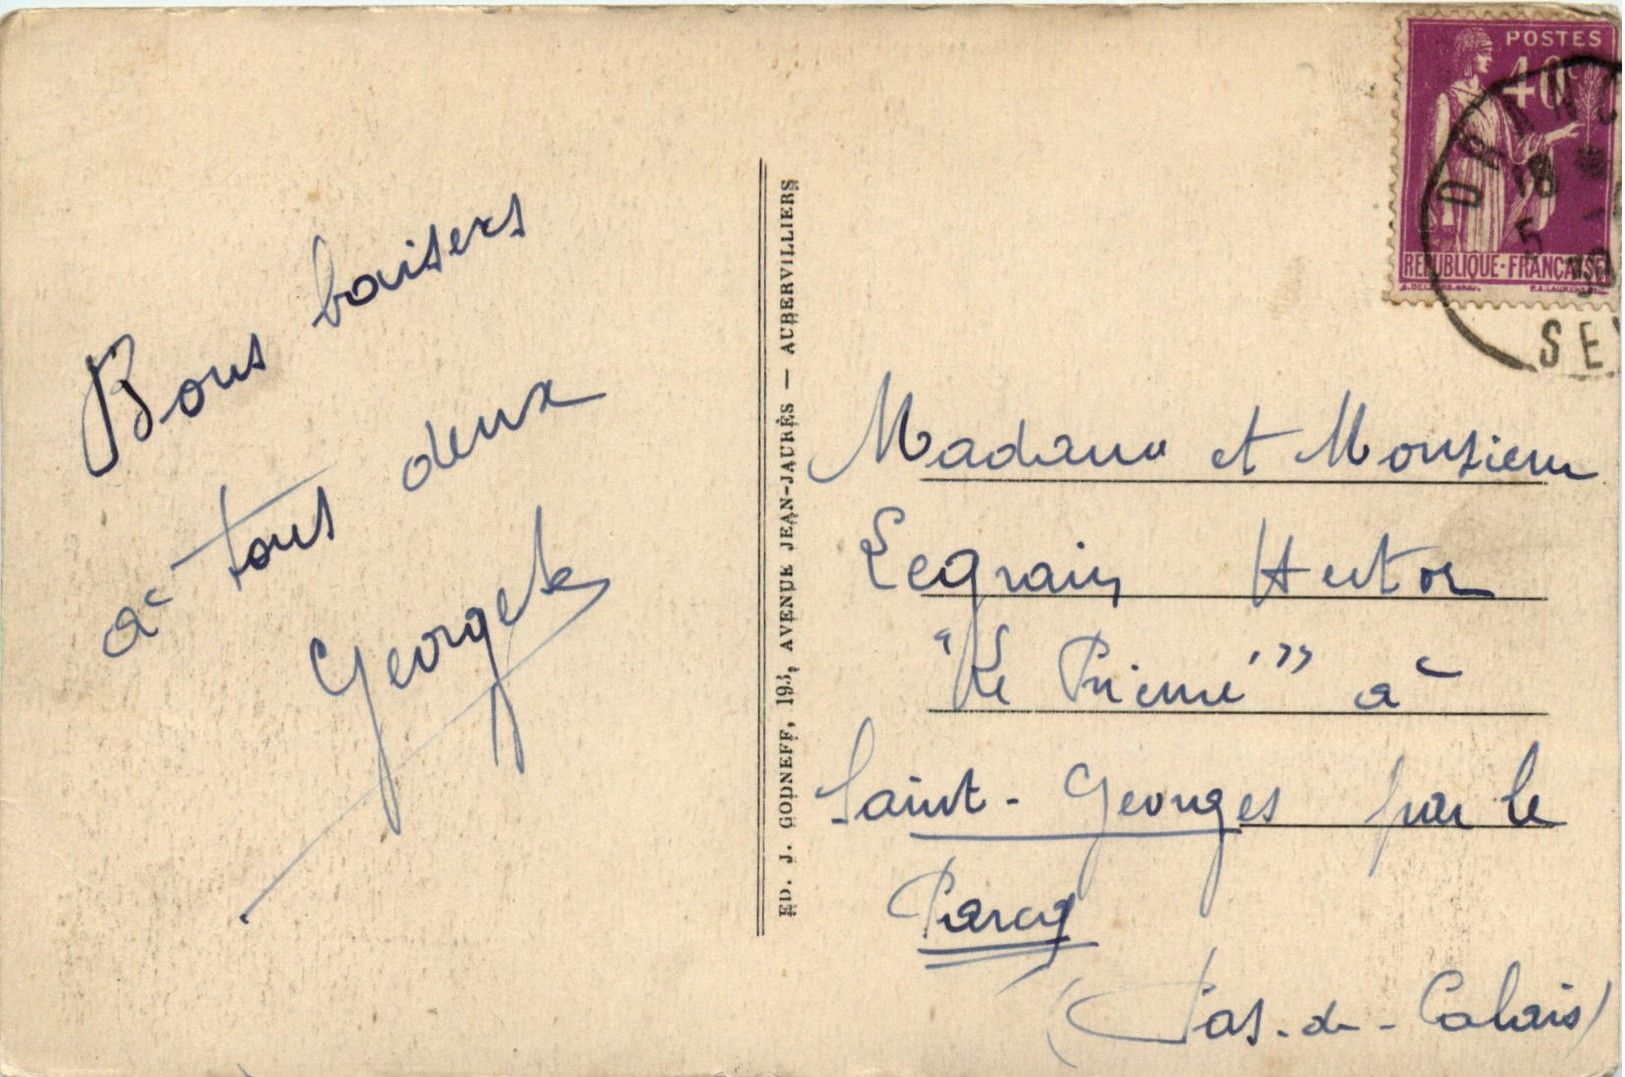 Bons baisers
à tous deux
Georgette
ED. J. GODNEFF, 193, AVENUE JEAN-JAURÈS — AUBERVILLIERS
POSTES
40c
RÉPUBLIQUE·FRANÇAISE
DRANC
18
5
SE
Madame et Monsieur
Legrain Hector
"Le Prieuré" à
Saint-Georges par le
Parcq
(Pas-de-Calais)